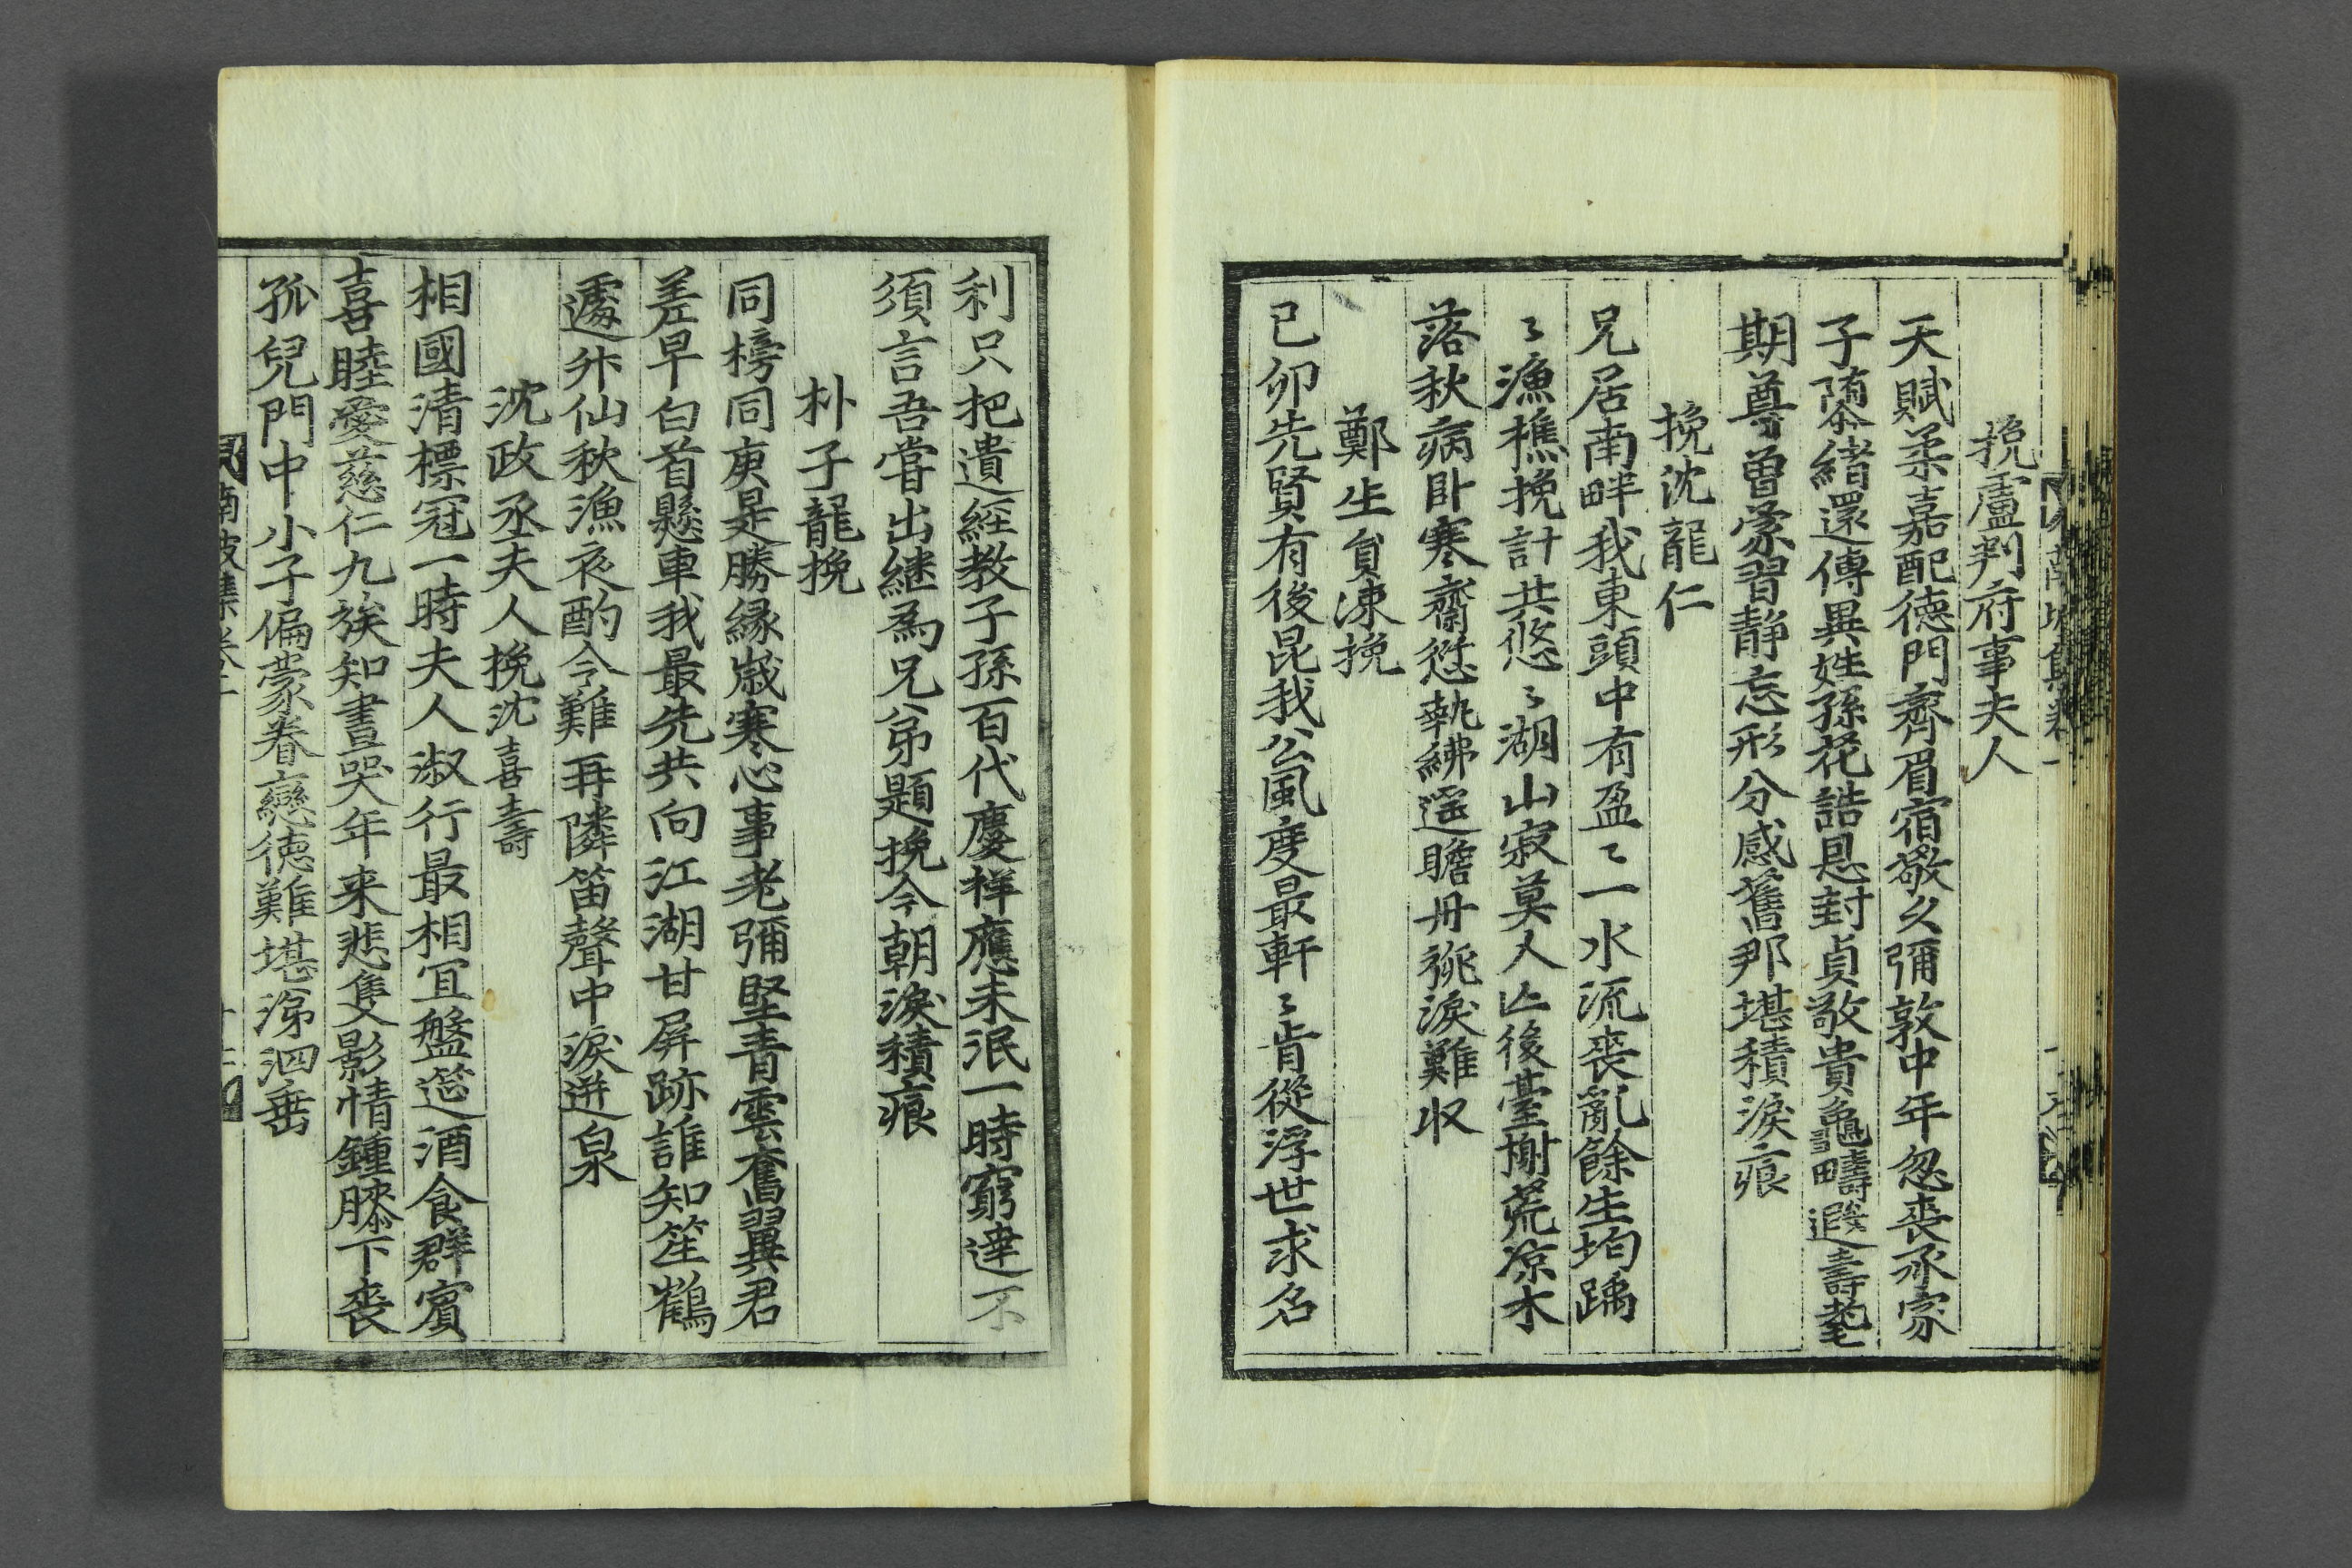 挽盧判府事夫人
天賦柔嘉配德門齊眉宿敬久彌敦中年忽喪承家
子隋緖還傳異姓孫花誥恩封貞敬貴龜疇遐壽耄
期尊曾蒙習靜忘形分感舊那堪積淚痕
挽沈龍仁
兄居南畔我東頭中有盈〻一水流喪亂餘生均踽
〻漁樵挽計共悠〻湖山寂莫人亾後臺榭荒凉木
落秋病卧寒齋愆執紼遥瞻丹旐淚難収
鄭生員涑挽
已卯先賢有後昆我公風度最軒〻肯從浮世求名
利只把遺經敎子孫百代慶祥應未泯一時窮達不
須言吾嘗出継爲兄弟題挽今朝淚積痕
朴子龍挽
同榜同庚是勝緣歲寒心事老彌堅青雲奮翼君
差早白首懸車我最先共向江湖甘屏跡誰知笙鶴
遽升仙秋漁夜酌今難再隣笛聲中淚迸泉
沈政丞夫人挽沈喜壽
相國淸標冠一時夫人淑行最相冝盤筵酒食群賓
喜睦愛慈仁九族知晝哭年来悲隻影情鍾膝下喪
孤兒門中小子偏蒙眷戀德難堪涕泗垂
南坡集卷二